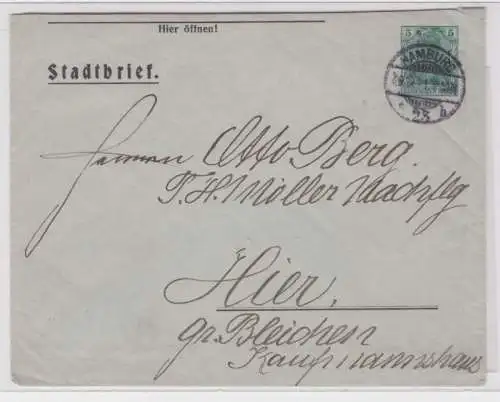 Hier öffnen!
5 5
Stadtbrief.
HAMBURG
Herrn Otto Berg.
T. H. Möller Nachflg
Hier,
gr. Bleichen
Kaufmannshaus